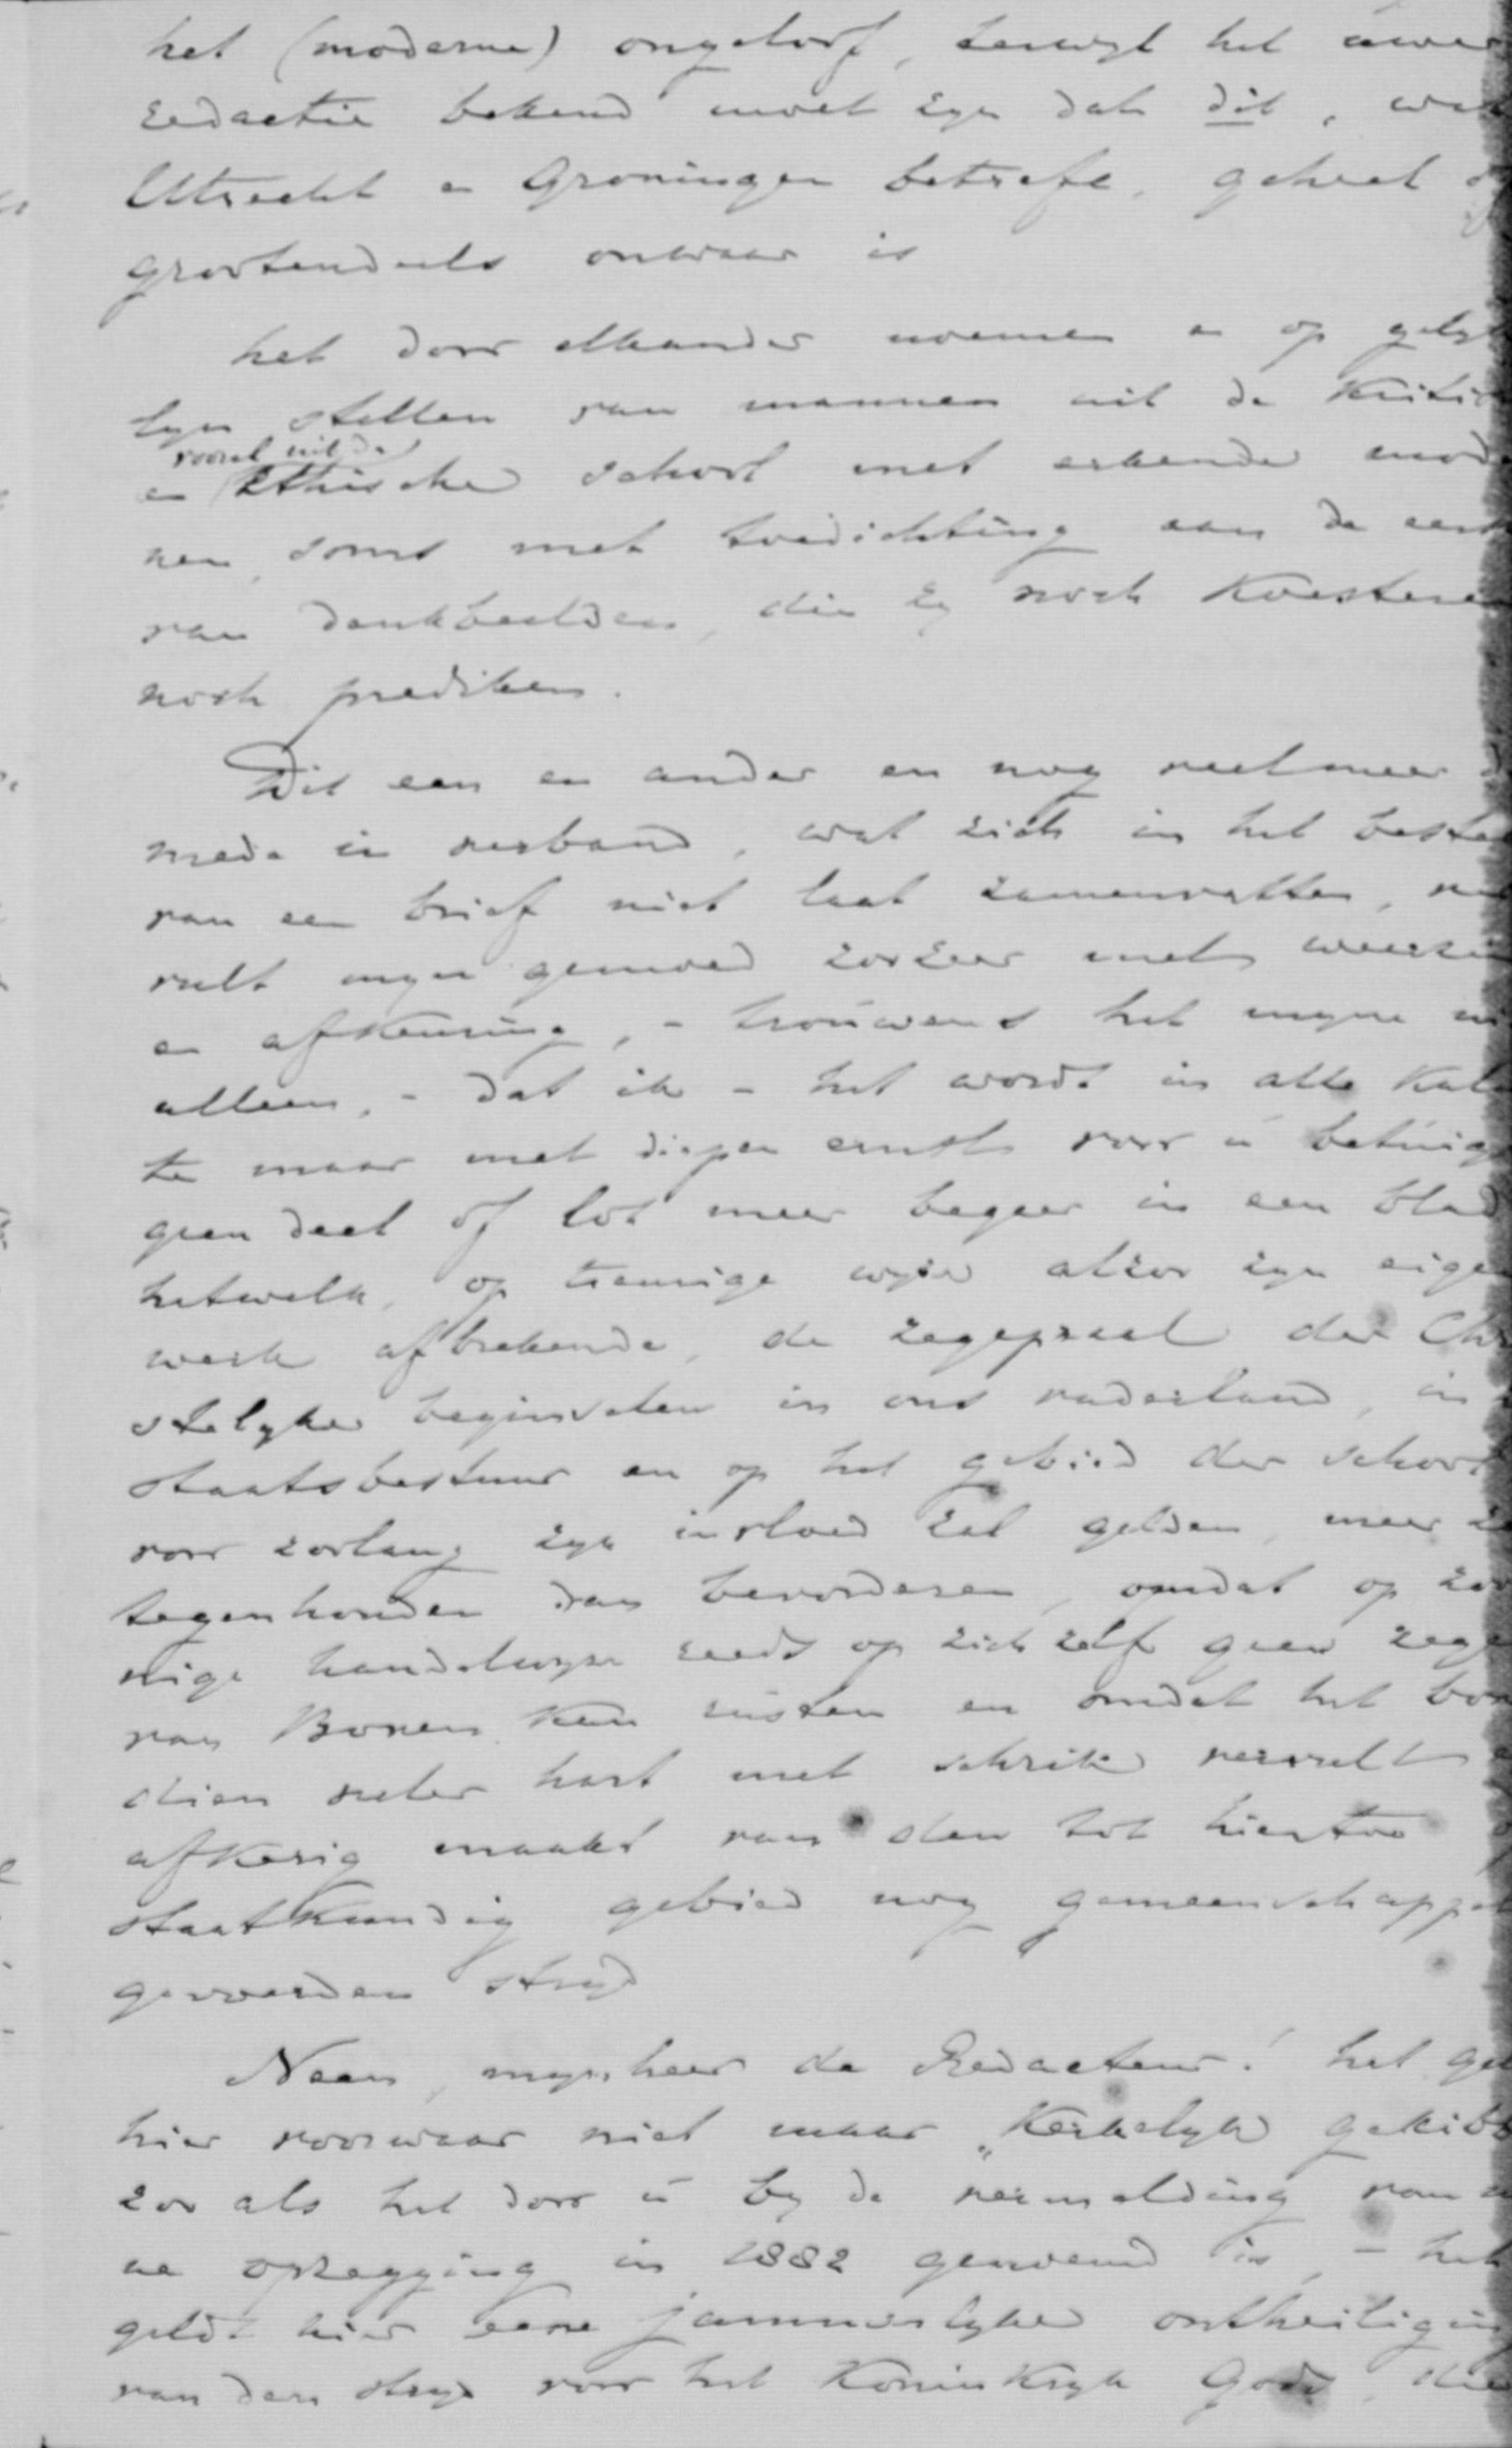 het (moderne) ongeloof, terwyl het uwer
redactie bekend moet zyn dat dit, wat
Utrecht en Groningen betreft, geheel of
grootendeels onwaar is
het door elkander noemen en op gelyke
lyn stellen van mannen uit de Kritische
vooral uit de
en Ethische school met erkende moder
nen, soms met toedichting aan de eersten
van denkbeelden, die zy noch koesteren
noch prediken.
Dit een en ander en nog veel meer daar
mede in verband, wat zich in het bestek
van een brief niet laat zamenvatten, ver
vult myn gemoed zoozeer met weerzin
en afkeuring, - trouwens het myne niet
alleen, - dat ik - het wordt in alle kalm
te maar met diepen ernst voor u betuigd
geen deel of lot meer begeer in een blad
hetwelk, op treurige wyze alzoo zyn eigen
werk afbrekende, de zegepraal der Chri
stelyke beginselen in ons vaderland, in
staatsbestuur en op het gebied der school
voor zoolang zyn invloed zal gelden, meer zal
tegenhouden dan bevorderen, omdat op zoo
nige handelwyze reeds op zich zelf geen zegen
van Boven kan rusten en omdat het boven
dien veler hart met schrik vervult en
afkeerig maakt van den tot hiertoe op
staatkundig gebied nog gemeenschappelyk
gevoerden stryd
Neen, mynheer de Redacteur! het geldt
hier voorwaar niet maar „Kerkelyk gekibbel
zoo als het door u by de vermelding van
ne opzegging in 1882 genoemd is, - het
geldt hier eene jammerlyke ontheiliging
van den stryd voor het Koninkryk Gods, die